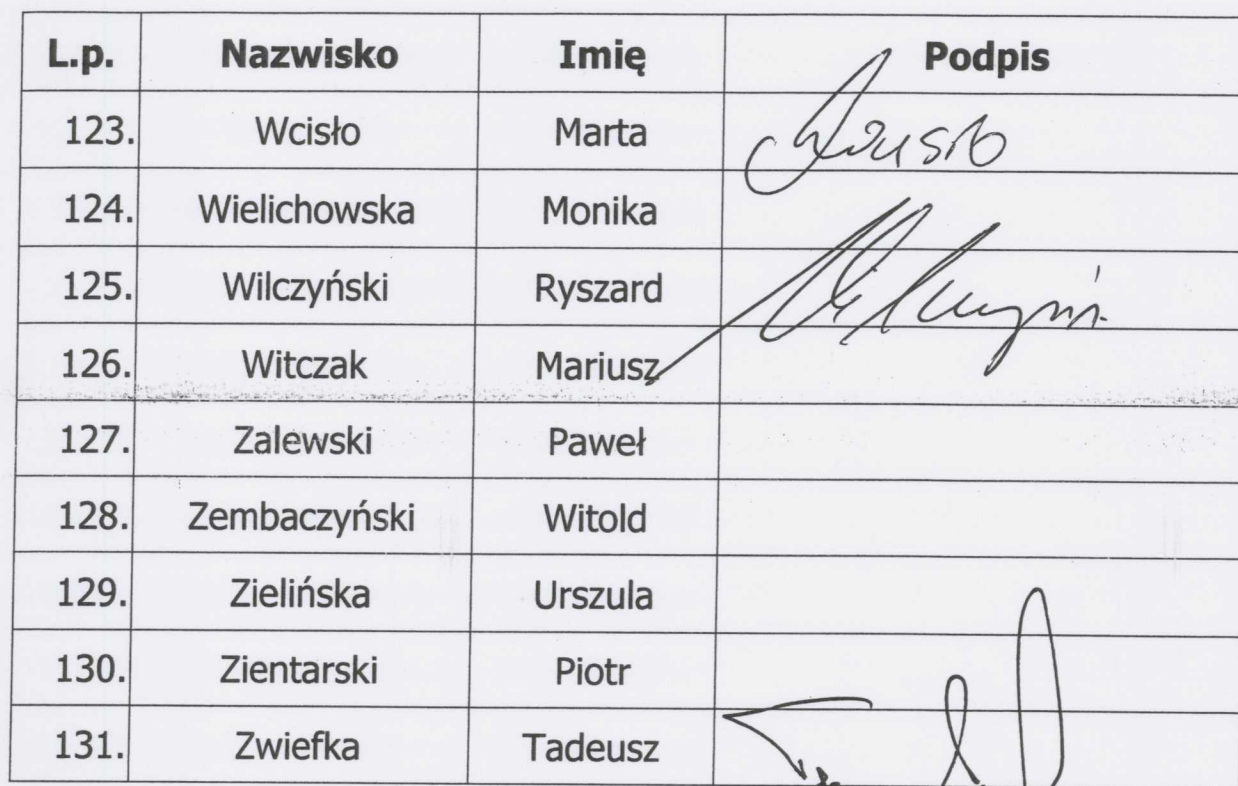 L.p. Nazwisko Imię Podpis
123. Wcisło Marta
124. Wielichowska Monika
125. Wilczyński Ryszard
126. Witczak Mariusz
127. Zalewski Paweł
128. Zembaczyński Witold
129. Zielińska Urszula
130. Zientarski Piotr
131. Zwiefka Tadeusz